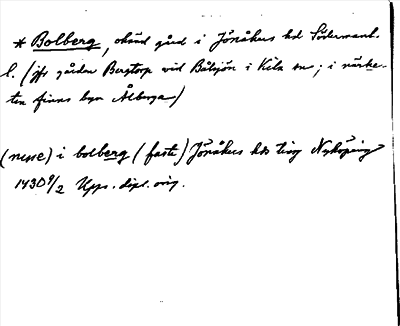 * Bolberg, okänd gård i Jönåkers hd Södermanl.
l. (jfr gården Bergtorp vid Båvsjön i Kila sn; i närhe-
ten finns byn Ålberga)
(nysse) i bolberg (faste) Jönåkers hds ting Nyköping
1430 9/2 Upps. dipl. orig.